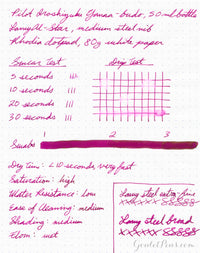 Pilot Iroshizuku Yama-budo, 50 ml bottle
Lamy Al-Star, medium steel nib
Rhodia dotpad, 80g white paper
Smear Test
Drip Test
5 seconds
10 seconds
20 seconds
30 seconds
1 2 3
Swabs
Dry time: < 10 seconds, very fast
Saturation: high
Water Resistance: low
Ease of Cleaning: medium
Shading: medium
Flow: wet
Lamy steel extra-fine
xxxxxx 888888
Lamy steel broad
xxxxxx 88888
GouletPens.com